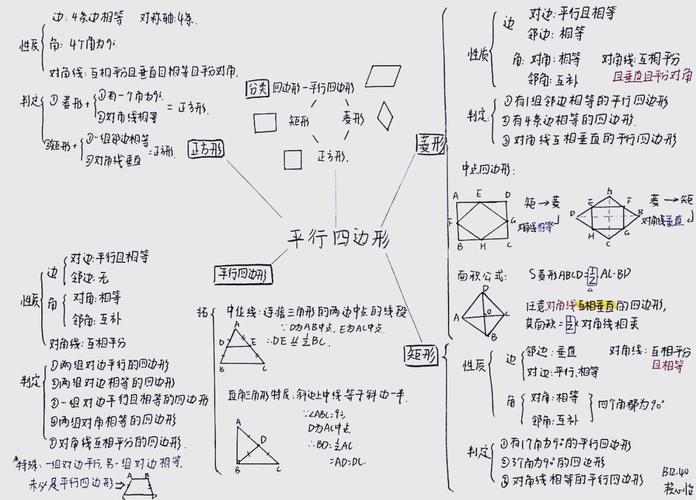 平行四边形
分类
四边形—平行四边形
矩形
菱形
正方形.
正方形
性质
边: 4条边相等 对称轴: 4条.
角: 4个角为90
对角线: 互相平分且垂直且相等且平分对角.
判定
①菱形+
①有一个角为90
②对角线相等
=正方形
②矩形+
①一组邻边相等
②对角线垂直
=正方形.
平行四边形
性质
边
对边: 平行且相等
邻边: 无
角
对角: 相等
邻角: 互补
对角线: 互相平分
判定
①两组对边平行的四边形
②两组对边相等的四边形
③一组对边平行且相等的四边形
④两组对角相等的四边形
⑤对角线互相平分的四边形.
*特殊: 一组对边平行,另一组对边相等,
未必是平行四边形⇒
A D
B C
拓
中位线: 连接三角形的两边中点的线段
∵D为AB中点, E为AC中点
∴DE ⫽ 1/2 BC.
A
D E
B C
直角三角形性质: 斜边上中线等于斜边一半.
∵∠ABC=90
D为AC中点
∴BD=1/2AC
=AD=DC.
A
D
B C
菱形
性质
边
对边: 平行且相等
邻边: 相等
角: 对角: 相等
邻角: 互补
对角线: 互相平分
且垂直且平分对角
判定:
①有1组邻边相等的平行四边形
②有4条边相等的四边形.
③对角线互相垂直的平行四边形
中点四边形:
A E D
F G
B H C
矩→菱
对角线相等
A
E F
D B
H G
C
菱→矩
对角线垂直
面积公式: S菱形ABCD=1/2 AC·BD
A B C D O
任意对角线互相垂直的四边形,
其面积=1/2×对角线相乘
矩形
性质
边
邻边: 垂直
对边: 平行.相等
对角线: 互相平分
且相等
角
对角: 相等
邻角: 互补
四个角都为90°
判定
①有1个角为90°的平行四边形
②3个角为90°的四边形
③对角线相等的平行四边形